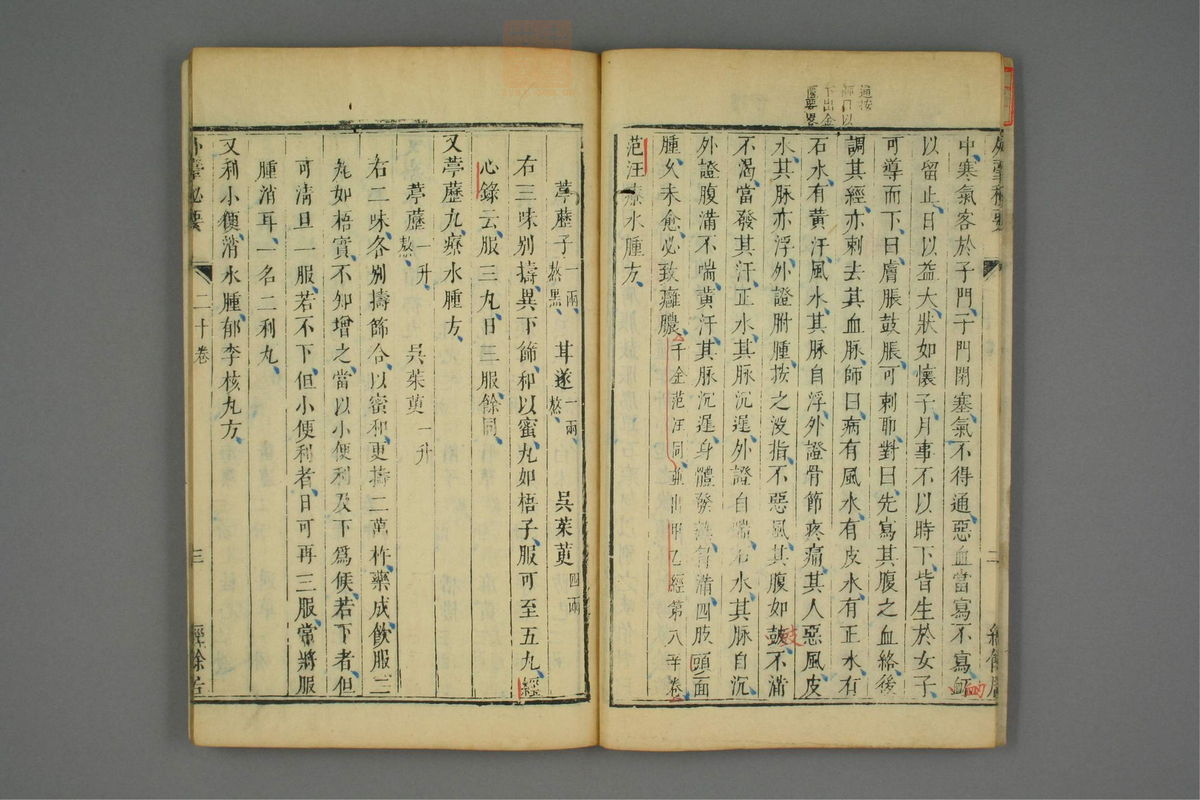 中寒氣客於子門子門閉塞氣不得通惡血當寫不寫衃
以留止日以益大狀如懷子月事不以時下皆生於女子
可導而下曰膚脹鼓脹可刺耶對曰先寫其腹之血絡後
調其經亦刺去其血脉師曰病有風水有皮水有正水有
石水有黃汗風水其脉自浮外證骨節疼痛其人惡風皮
水其脉亦浮外證胕腫按之沒指不惡風其腹如鼓不滿
不渴當發其汗正水其脉沉遲外證自喘石水其脉自沉
外證腹滿不喘黃汗其脉沉遲身體發熱胷滿四肢頭面
腫久未愈必致癰膿千金范汪同並出甲乙經第八卷
范汪療水腫方
葶藶子一兩熬黑 甘遂一兩熬 吳茱萸四兩
右三味別擣異下篩和以蜜丸如梧子服可至五丸經
心錄云服三丸日三服餘同
又葶藶丸療水腫方
葶藶一升熬 吳茱萸一升
右二味各別擣篩合以蜜和更擣二萬杵藥成飲服二
丸如梧實不知增之當以小便利及下爲候若下者但
可清旦一服若不下但小便利者日可再三服常將服
腫消耳一名二利丸
又利小便消水腫郁李核丸方
外臺秘要
二十卷
三
經餘居